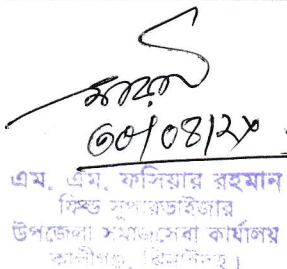 ৩০/০৪/২৫
এম. এম. ফসিয়ার রহমান
ফিল্ড সুপারভাইজার
উপজেলা সমাজসেবা কার্যালয়
কালীগঞ্জ, ঝিনাইদহ।